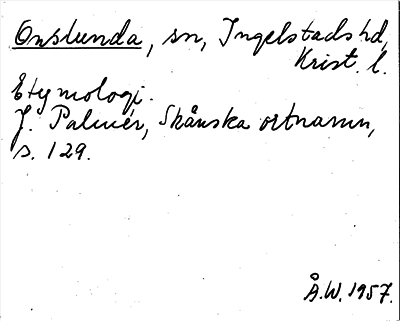 Onslunda, sn, Ingelstads hd,
Krist. l.
Etymologi.
J. Palmér, Skånska ortnamn,
s. 129.
Å.W. 1957.